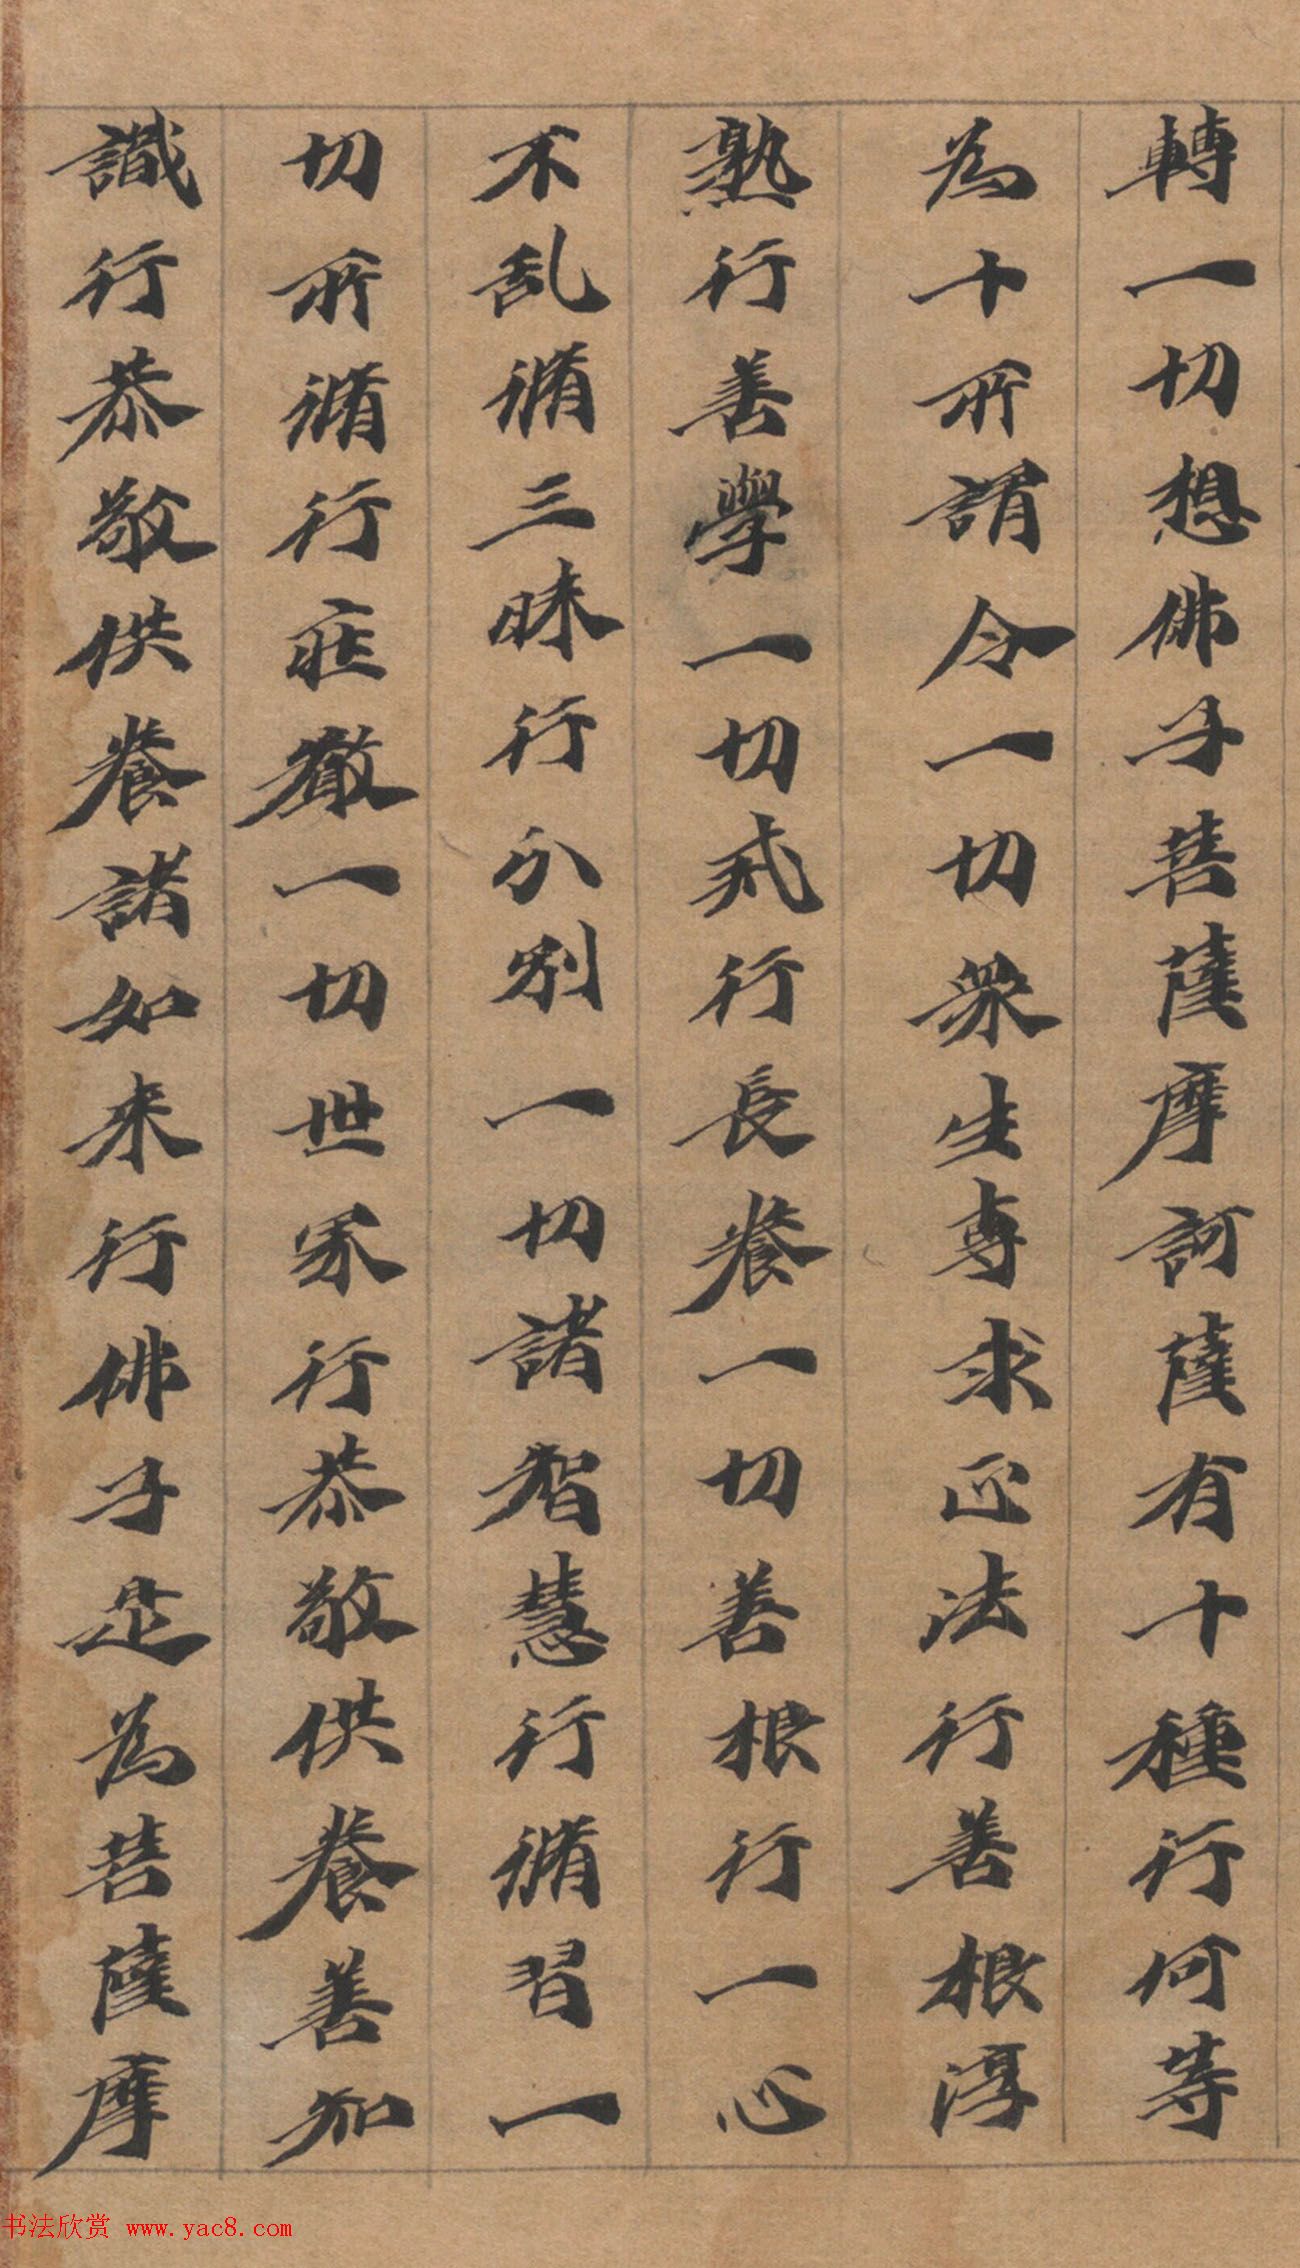 轉一切想佛子菩薩摩訶薩有十種行何等
為十所謂令一切眾生専求正法行善根淳
熟行善學一切戒行長養一切善根行一心
不乱脩三昧行分別一切諸智慧行脩習一
切所脩行莊嚴一切世界行恭敬供養善知
識行恭敬供養諸如来行佛子是為菩薩摩
书法欣赏 www.yac8.com